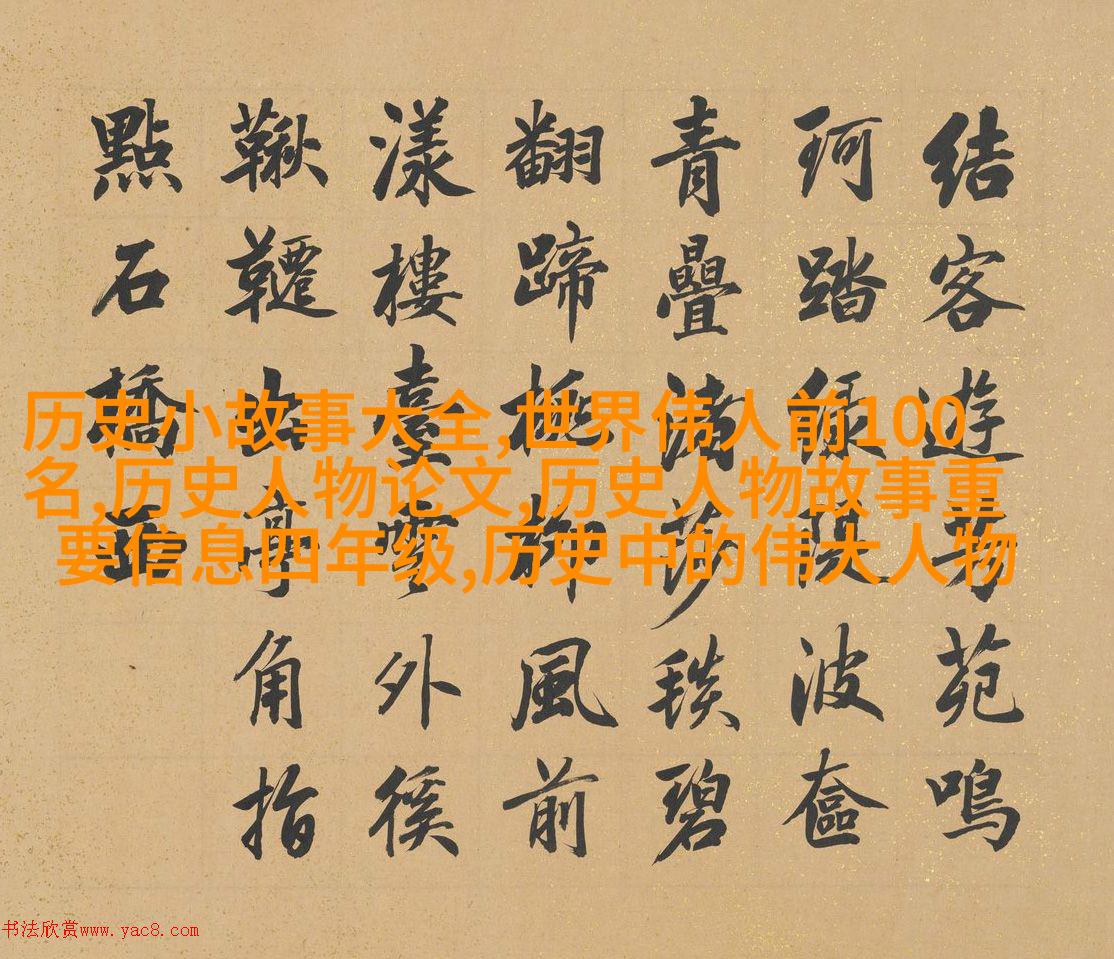 結客遊芳苑鳴
珂踏綠隄波奩
青疊滿莎毯碧
翻蹄柳風前
漾樓臺雲外徯
鞦韆亭角指
點石橋西
历史小故事大全,世界伟人前100
名,历史人物论文,历史人物故事重
要信息四年级,历史中的伟大人物
书法欣赏www.yac8.com